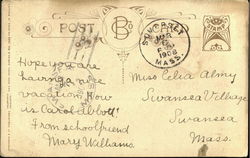 POST CARD
SOMERSET
1908
MASS.
STAMP
Hope you are
having a nice
vacation. How
is Carol Abbott
From school friend
Mary Williams.
Miss Celia Almy
Swansea Village
Swansea
Mass.